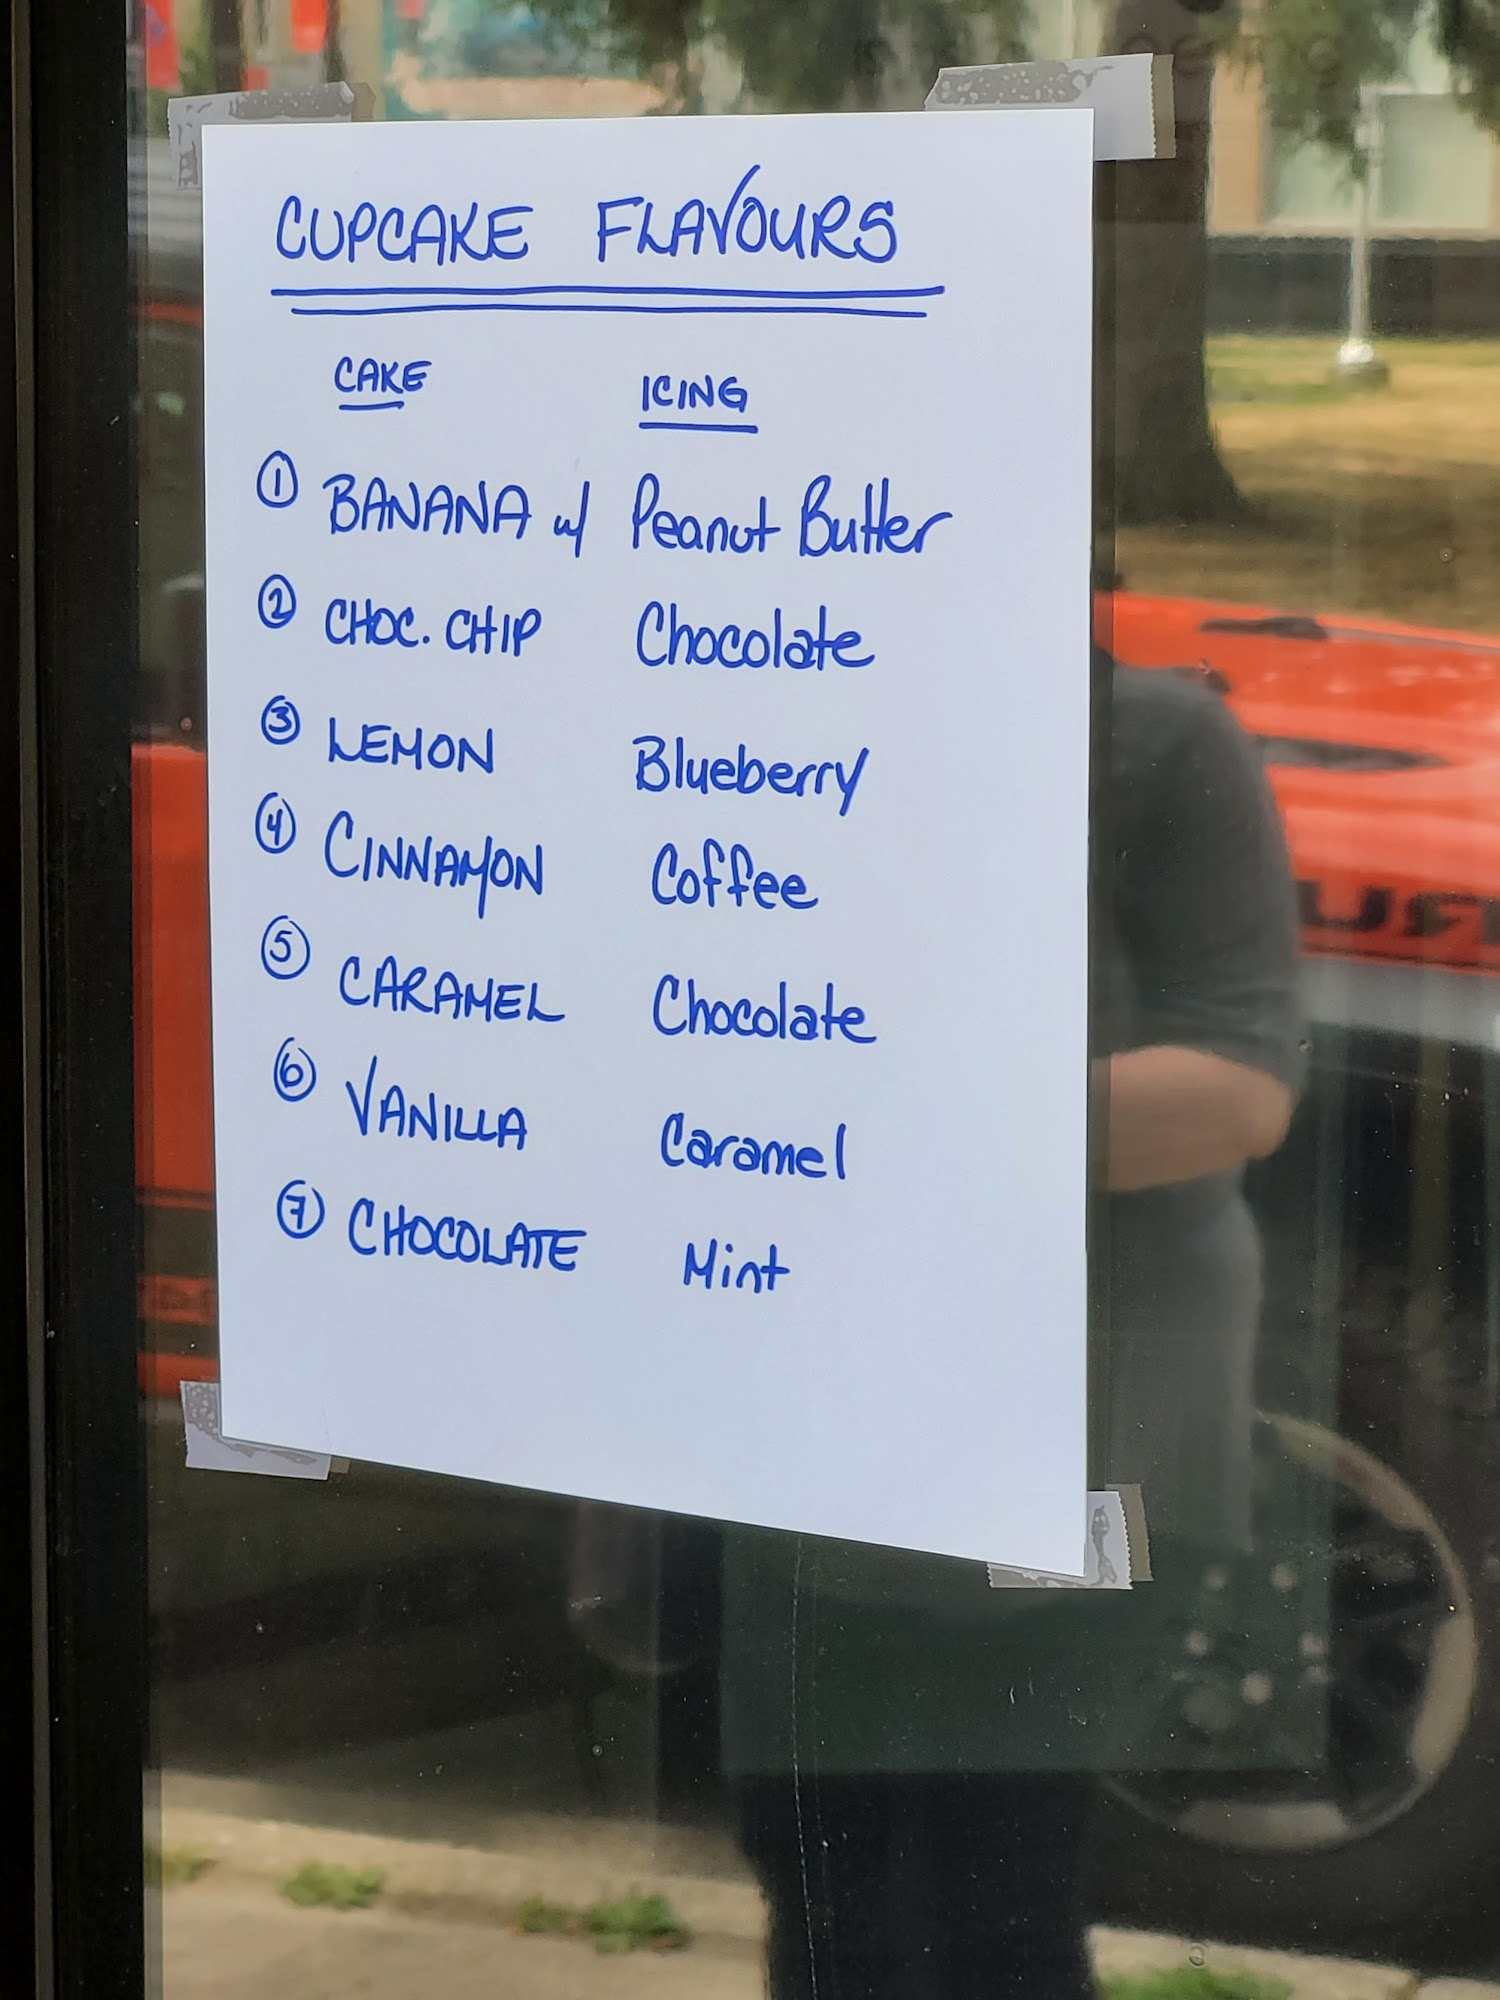 CUPCAKE FLAVOURS
CAKE ICING
① BANANA w/ Peanut Butter
② CHOC. CHIP Chocolate
③ LEMON Blueberry
④ CINNAMON Coffee
⑤ CARAMEL Chocolate
⑥ VANILLA Caramel
⑦ CHOCOLATE Mint